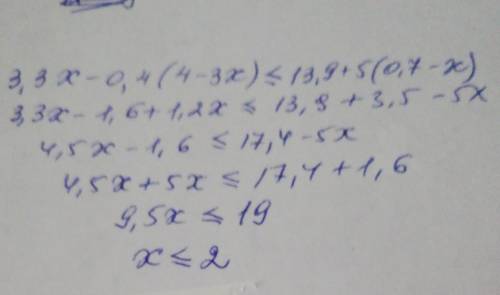 3,3x - 0,4(4-3x) ≤ 13,9 + 5(0,7-x)
3,3x - 1,6 + 1,2x ≤ 13,9 + 3,5 - 5x
4,5x - 1,6 ≤ 17,4 - 5x
4,5x + 5x ≤ 17,4 + 1,6
9,5x ≤ 19
x ≤ 2